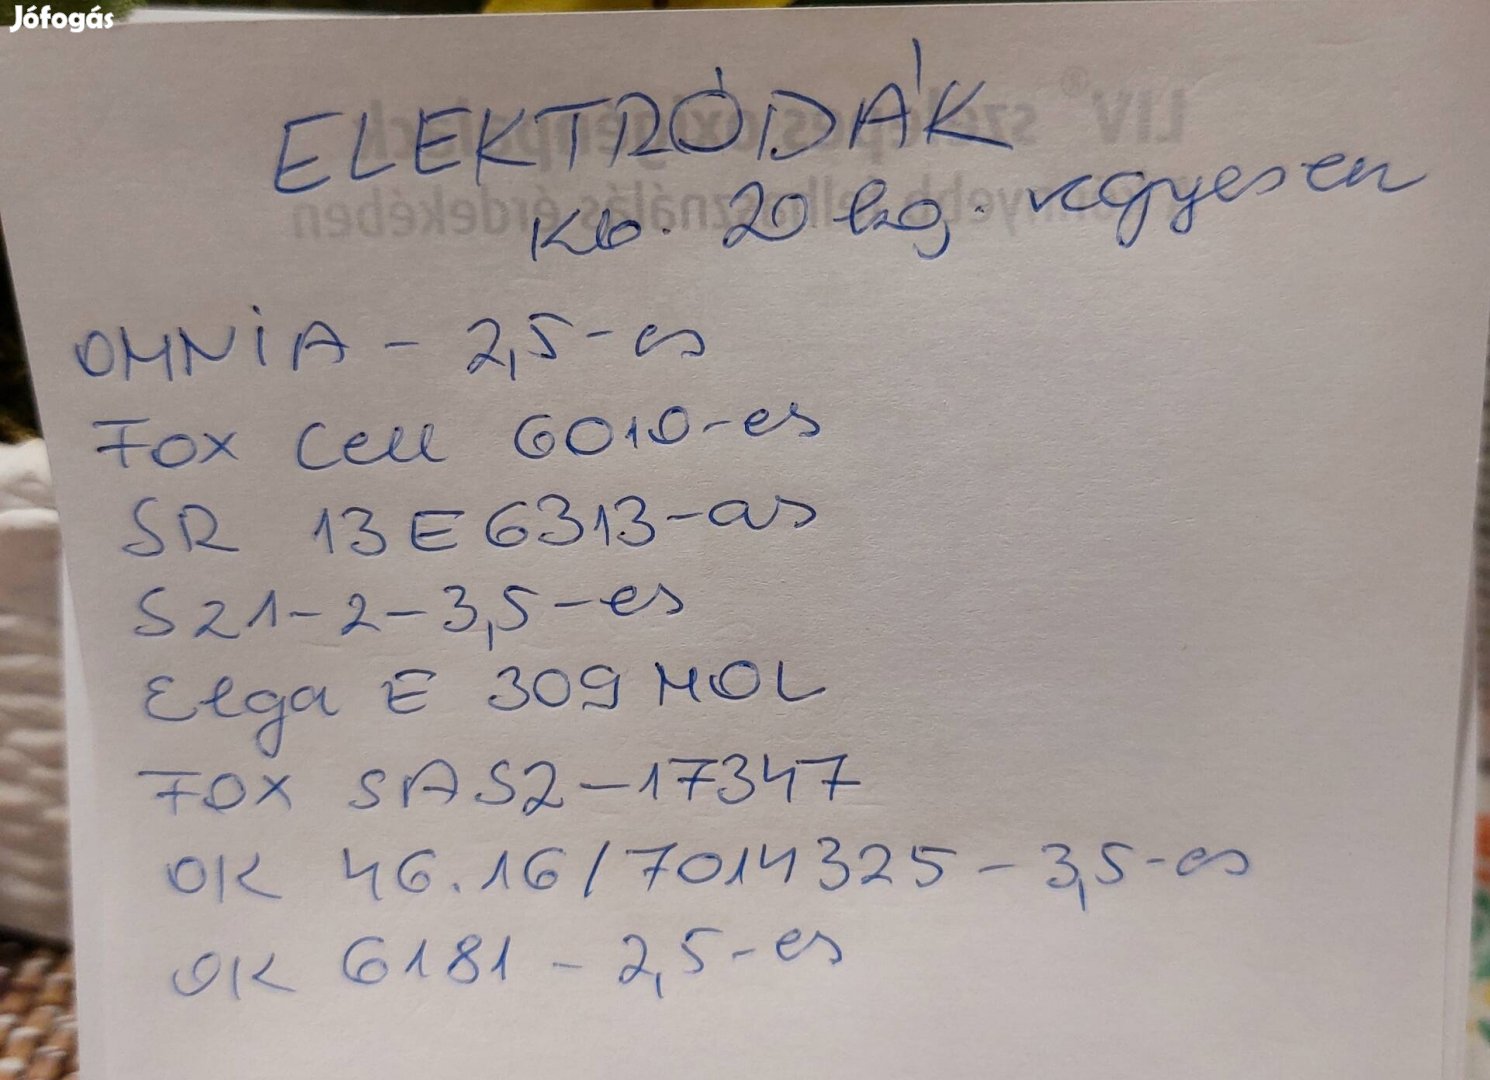 Jófogás
ELEKTRÓDÁK
Kb. 20 kg. vegyesen
OMNIA - 2,5-es
FOX Cell 6010-es
SR 13E6313-as
S21-2-3,5-es
Elga E 309 MOL
FOX SAS2-17347
OK 46.16/7014325 - 3,5-es
OK 6181 - 2,5-es